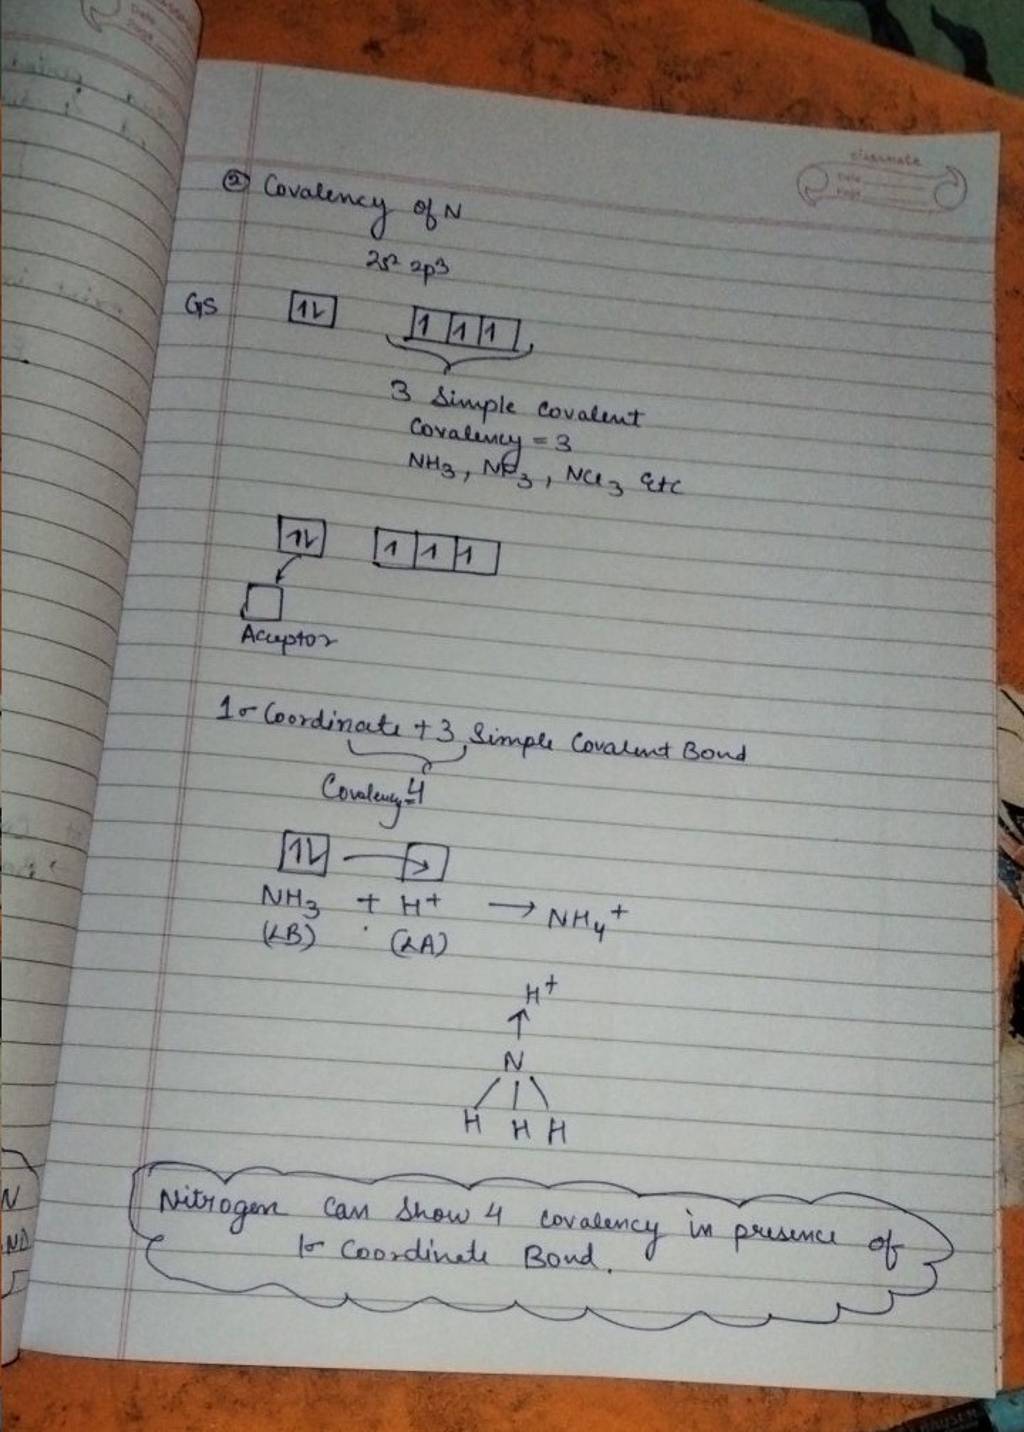 classmate
Date
Page
② Covalency of N
2s² 2p³
GS 1↿⇂ 1 1 1
3 Simple Covalent
Covalency = 3
NH₃, NF₃, NCl₃ etc
1↿⇂ 1 1 1
Acceptor
1σ Coordinate + 3 Simple Covalent Bond
Covalency=4
1↿⇂ → 
NH₃ + H⁺ → NH₄⁺
(LB) (LA)
H⁺
↑
N
H H H
Nitrogen can show 4 covalency in presence of
1σ Coordinate Bond.